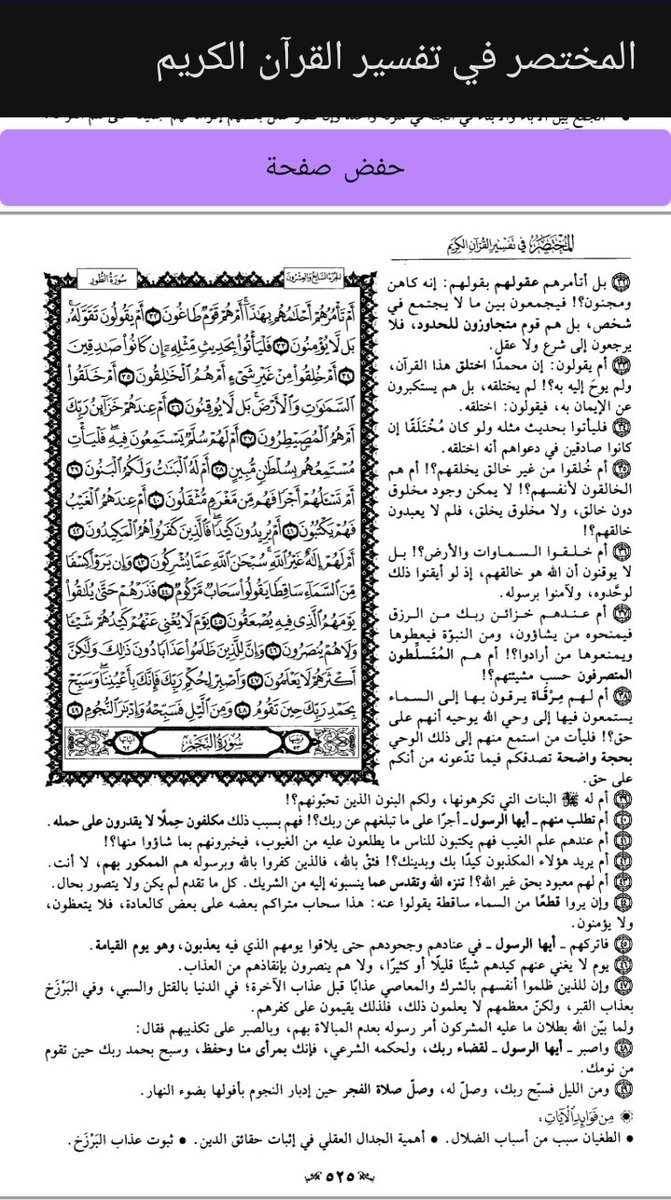 المختصر في تفسير القرآن الكريم
حفض صفحة
المختصر في تفسير القرآن الكريم
سورة الطور
الجزء السابع والعشرون
أَمْ تَأْمُرُهُمْ أَحْلَامُهُم بِهَٰذَا أَمْ هُمْ قَوْمٌ طَاغُونَ ٣٢ أَمْ يَقُولُونَ تَقَوَّلَهُ
بَل لَّا يُؤْمِنُونَ ٣٣ فَلْيَأْتُوا بِحَدِيثٍ مِّثْلِهِ إِن كَانُوا صَادِقِينَ
٣٤ أَمْ خُلِقُوا مِنْ غَيْرِ شَيْءٍ أَمْ هُمُ الْخَالِقُونَ ٣٥ أَمْ خَلَقُوا
السَّمَاوَاتِ وَالْأَرْضَ بَل لَّا يُوقِنُونَ ٣٦ أَمْ عِندَهُمْ خَزَائِنُ رَبِّكَ
أَمْ هُمُ الْمُصَيْطِرُونَ ٣٧ أَمْ لَهُمْ سُلَّمٌ يَسْتَمِعُونَ فِيهِ فَلْيَأْتِ
مُسْتَمِعُهُم بِسُلْطَانٍ مُّبِينٍ ٣٨ أَمْ لَهُ الْبَنَاتُ وَلَكُمُ الْبَنُونَ ٣٩
أَمْ تَسْأَلُهُمْ أَجْرًا فَهُم مِّن مَّغْرَمٍ مُّثْقَلُونَ ٤٠ أَمْ عِندَهُمُ الْغَيْبُ
فَهُمْ يَكْتُبُونَ ٤١ أَمْ يُرِيدُونَ كَيْدًا فَالَّذِينَ كَفَرُوا هُمُ الْمَكِيدُونَ ٤٢
أَمْ لَهُمْ إِلَٰهٌ غَيْرُ اللَّهِ سُبْحَانَ اللَّهِ عَمَّا يُشْرِكُونَ ٤٣ وَإِن يَرَوْا كِسْفًا
مِّنَ السَّمَاءِ سَاقِطًا يَقُولُوا سَحَابٌ مَّرْكُومٌ ٤٤ فَذَرْهُمْ حَتَّىٰ يُلَاقُوا
يَوْمَهُمُ الَّذِي فِيهِ يُصْعَقُونَ ٤٥ يَوْمَ لَا يُغْنِي عَنْهُمْ كَيْدُهُمْ شَيْئًا
وَلَا هُمْ يُنصَرُونَ ٤٦ وَإِنَّ لِلَّذِينَ ظَلَمُوا عَذَابًا دُونَ ذَٰلِكَ وَلَٰكِنَّ
أَكْثَرَهُمْ لَا يَعْلَمُونَ ٤٧ وَاصْبِرْ لِحُكْمِ رَبِّكَ فَإِنَّكَ بِأَعْيُنِنَا وَسَبِّحْ
بِحَمْدِ رَبِّكَ حِينَ تَقُومُ ٤٨ وَمِنَ اللَّيْلِ فَسَبِّحْهُ وَإِدْبَارَ النُّجُومِ ٤٩
سورة النجم
٣٢ بل أتأمرهم عقولهم بقولهم: إنه كاهن
ومجنون؟! فيجمعون بين ما لا يجتمع في
شخص، بل هم قوم متجاوزون للحدود، فلا
يرجعون إلى شرع ولا عقل.
٣٣ أم يقولون: إن محمدًا اختلق هذا القرآن،
ولم يوحَ إليه به؟! لم يختلقه، بل هم يستكبرون
عن الإيمان به، فيقولون: اختلقه.
٣٤ فليأتوا بحديث مثله ولو كان مُخْتَلَقًا إن
كانوا صادقين في دعواهم أنه اختلقه.
٣٥ أم خُلقوا من غير خالق يخلقهم؟! أم هم
الخالقون لأنفسهم؟! لا يمكن وجود مخلوق
دون خالق، ولا مخلوق يخلق، فلم لا يعبدون
خالقهم؟!
٣٦ أم خلقوا السماوات والأرض؟! بل
لا يوقنون أن الله هو خالقهم، إذ لو أيقنوا ذلك
لوحَّدوه، ولآمنوا برسوله.
٣٧ أم عندهم خزائن ربك من الرزق
فيمنحوه من يشاؤون، ومن النبوّة فيعطوها
ويمنعوها من أرادوا؟! أم هم المُتَسلِّطون
المتصرفون حسب مشيئتهم؟!
٣٨ أم لهم مِرْقَاة يرقون بها إلى السماء
يستمعون فيها إلى وحي الله يوحيه أنهم على
حق؟! فليأت من استمع منهم إلى ذلك الوحي
بحجة واضحة تصدقكم فيما تدّعونه من أنكم
على حق.
٣٩ أم له ﷻ البنات التي تكرهونها، ولكم البنون الذين تحبّونهم؟!
٤٠ أم تطلب منهم ـ أيها الرسول ـ أجرًا على ما تبلغهم عن ربك؟! فهم بسبب ذلك مكلفون حِملًا لا يقدرون على حمله.
٤١ أم عندهم علم الغيب فهم يكتبون للناس ما يطلعون عليه من الغيوب، فيخبرونهم بما شاؤوا منها؟!
٤٢ أم يريد هؤلاء المكذبون كيدًا بك وبدينك؟! فثقْ بالله، فالذين كفروا بالله وبرسوله هم الممكور بهم، لا أنت.
٤٣ أم لهم معبود بحق غير الله؟! تنزه الله وتقدس عما ينسبونه إليه من الشريك. كل ما تقدم لم يكن ولا يتصور بحال.
٤٤ وإن يروا قطعًا من السماء ساقطة يقولوا عنه: هذا سحاب متراكم بعضه على بعض كالعادة، فلا يتعظون،
ولا يؤمنون.
٤٥ فاتركهم ـ أيها الرسول ـ في عنادهم وجحودهم حتى يلاقوا يومهم الذي فيه يعذبون، وهو يوم القيامة.
٤٦ يوم لا يغني عنهم كيدهم شيئًا قليلًا أو كثيرًا، ولا هم ينصرون بإنقاذهم من العذاب.
٤٧ وإن للذين ظلموا أنفسهم بالشرك والمعاصي عذابًا قبل عذاب الآخرة؛ في الدنيا بالقتل والسبي، وفي البَرْزَخ
بعذاب القبر، ولكنّ معظمهم لا يعلمون ذلك، فلذلك يقيمون على كفرهم.
ولما بيّن الله بطلان ما عليه المشركون أمر رسوله بعدم المبالاة بهم، وبالصبر على تكذيبهم فقال:
٤٨ واصبر ـ أيها الرسول ـ لقضاء ربك، ولحكمه الشرعي، فإنك بمرأى منا وحفظ، وسبح بحمد ربك حين تقوم
من نومك.
٤٩ ومن الليل فسبّح ربك، وصلّ له، وصلّ صلاة الفجر حين إدبار النجوم بأفولها بضوء النهار.
من فوائد الآيات:
• الطغيان سبب من أسباب الضلال. • أهمية الجدال العقلي في إثبات حقائق الدين. • ثبوت عذاب البَرْزَخ.
٥٢٥